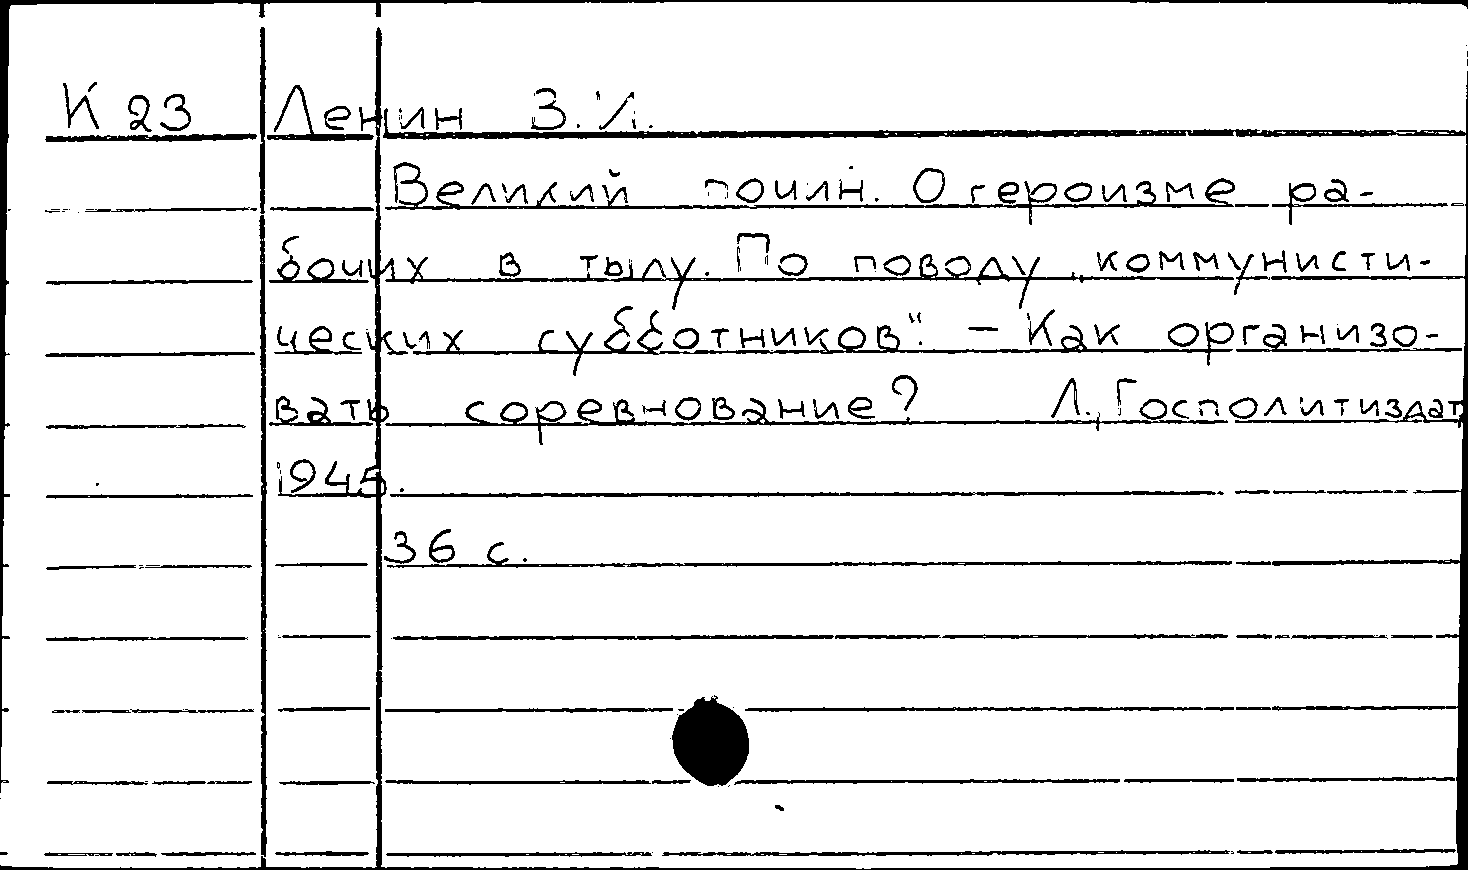 К 23 Ленин В.И.
Великий почин. О героизме ра-
бочих в тылу. По поводу „коммунисти-
ческих субботников". - Как организо-
вать соревнование? Л., Госполитиздат,
1945.
36 с.